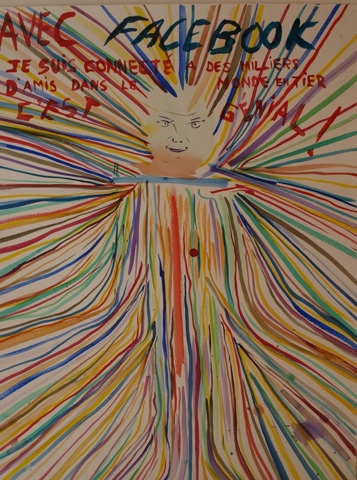 AVEC FACEBOOK
JE SUIS CONNECTE A DES MILLIERS
D'AMIS DANS LE MONDE ENTIER
C'EST GENIAL!